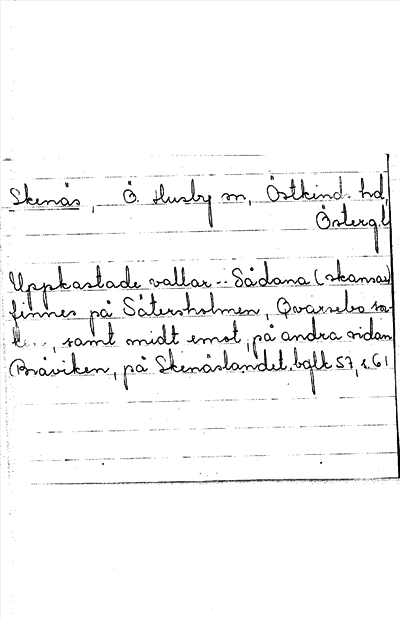 Skenäs, Ö. Husby sn, Östkind. hd,
Östergl
Uppkastade vallar.. Sådana (skansar
finnes på Sätersholmen, Qvarsebo so-
k..., samt midt emot, på andra sidan
Bråviken, på Skenäslandet. bglk 57, s. 61